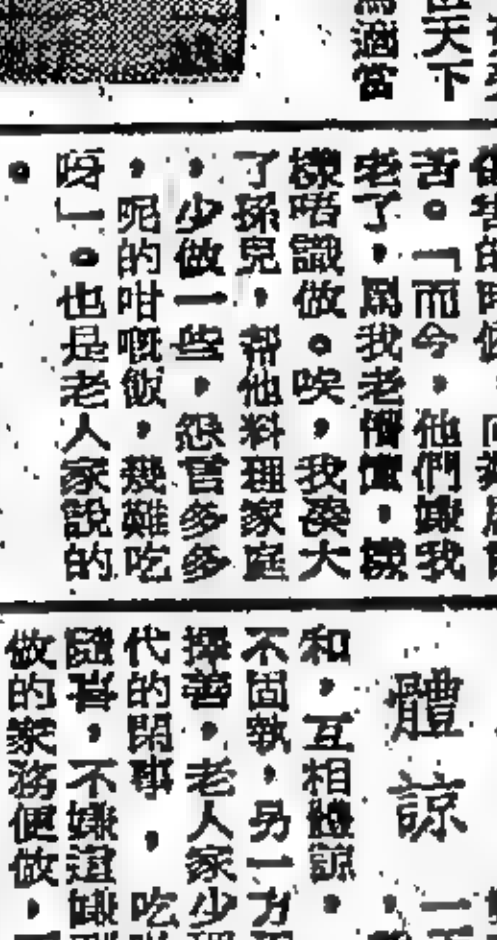 天下
適當
苦。「而今,他們嫌我
老了,罵我老懵懂,樣
樣唔識做。唉,我湊大
了孫兒,幫他料理家庭
,少做一些,怨言多多
,呢的咁嘅飯,幾難吃
呀」。也是老人家說的
。
體諒
和,互相體諒。
不固執,另一方
擇善,老人家少
代的閒事,吃
隨喜,不嫌這嫌
做的家務便做,